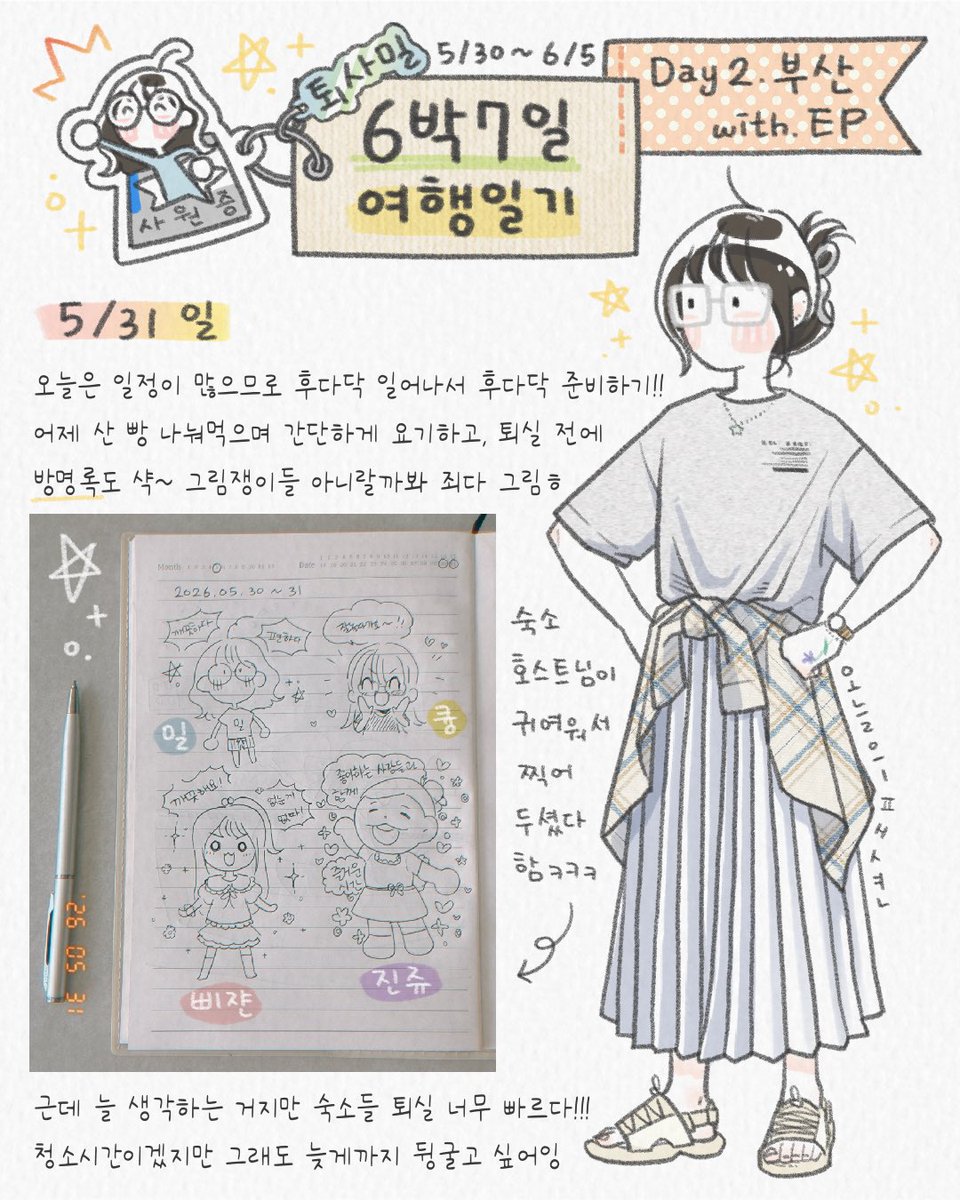 퇴사밀
5/30~6/5
6박7일
여행일기
Day 2. 부산
with. EP
사원증
5/31 일
오늘은 일정이 많으므로 후다닥 일어나서 후다닥 준비하기!!
어제 산 빵 나눠먹으며 간단하게 요기하고, 퇴실 전에
방명록도 샥~ 그림쟁이들 아니랄까봐 죄다 그림ㅎ
Month
Date
2026.05.30~31
깨끗하다
편하다
밀
밀
쿵
깨끗해요!
없는게
없따!
좋아하는 사람들과
함께
즐거운
삐쟌
진쥬
'26 05 31
숙소
호스트님이
귀여워서
찍어
두셨다
함ㅋㅋㅋ
오늘의-패션
근데 늘 생각하는 거지만 숙소들 퇴실 너무 빠르다!!!
청소시간이겠지만 그래도 늦게까지 뒹굴고 싶어잉